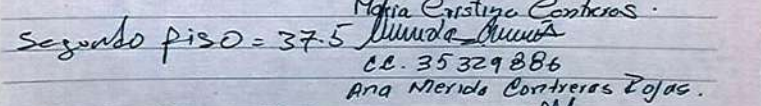 Maria Cristina Contreras.
Segundo piso = 37.5
cc. 35329886
Ana Merida Contreras Rojas.